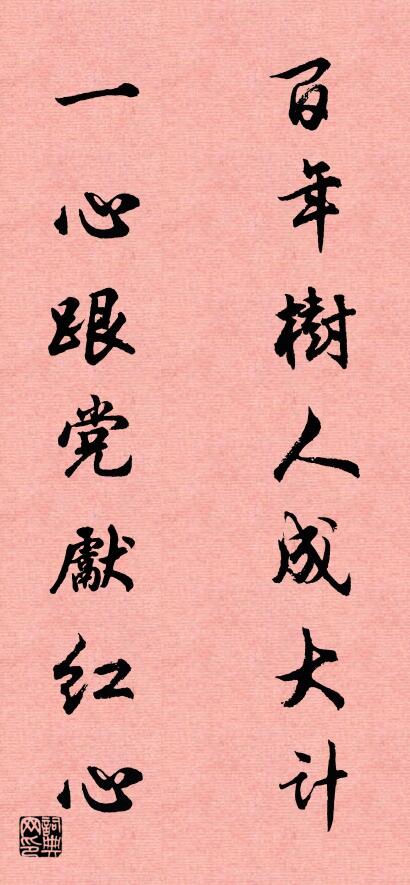 百年樹人成大计
一心跟党獻红心
詞典网印